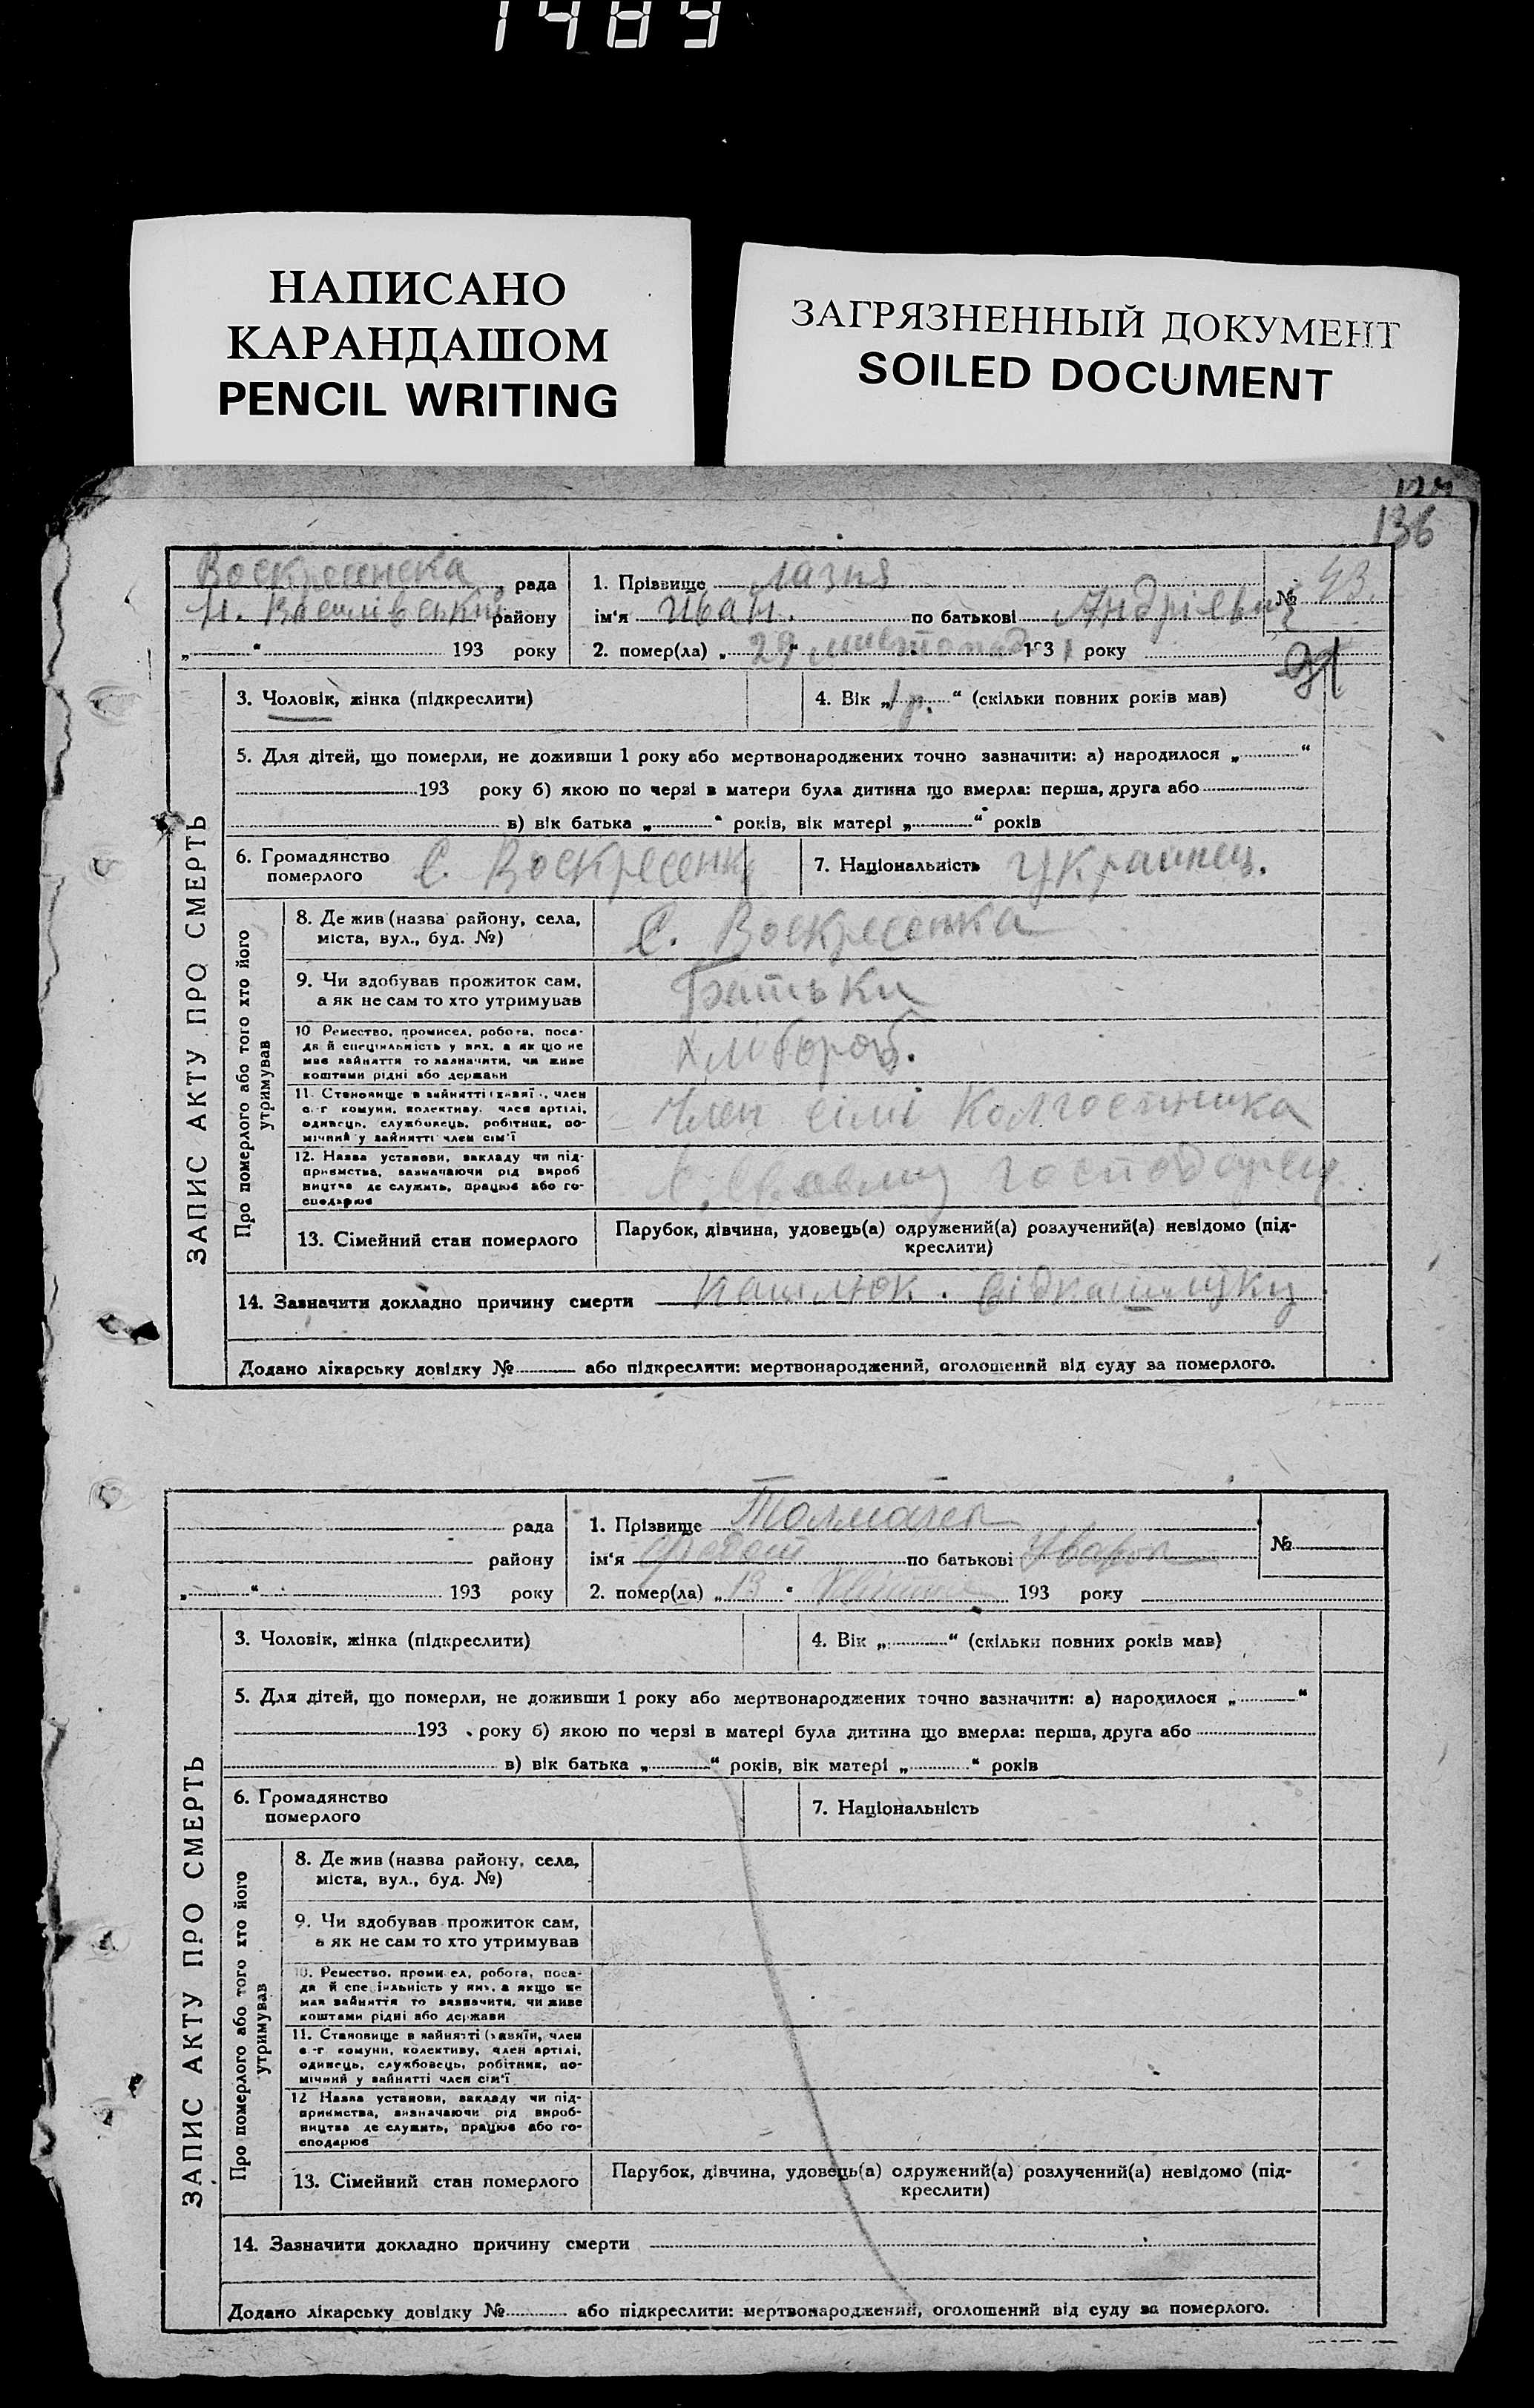 1489
НАПИСАНО
КАРАНДАШОМ
PENCIL WRITING
ЗАГРЯЗНЕННЫЙ ДОКУМЕНТ
SOILED DOCUMENT
136
Воскресенска рада
району
„ “ 193 року
1. Прізвище Лазня
ім'я Иван. по батькові Андрієвич
2. помер(ла) „29“ листопад 193 року
№ 43.
ЗАПИС АКТУ ПРО СМЕРТЬ
3. Чоловік, жінка (підкреслити)
4. Вік „1 р.“ (скільки повних років мав)
5. Для дітей, що померли, не доживши 1 року або мертвонароджених точно зазначити: а) народилося „ “
193 року б) якою по черзі в матери була дитина що вмерла: перша, друга або
в) вік батька „ “ років, вік матері „ “ років
6. Громадянство
померлого
С. Воскресенка
7. Національність Украинец.
Про померлого або того хто його
утримував
8. Де жив (назва району, села,
міста, вул., буд. №)
С. Воскресенка
9. Чи здобував прожиток сам,
а як не сам то хто утримував
Батьки
10 Ремество, промисел, робота, поса-
да й спеціяльність у них, а як що не
мав зайняття то зазначити, чи живе
коштами рідні або держави
Хлибороб.
11. Становище в зайнятті (хазяїн, член
с.-г комуни, колективу, член артілі,
одинець, службовець, робітник, по-
мічний у зайнятті член сім'ї
Член сімі Колгоспника
12. Назва установи, закладу чи під-
приємства, зазначаючи рід вироб
ництва де служить, працює або го-
сподарює
13. Сімейний стан померлого
Парубок, дівчина, удовець(а) одружений(а) розлучений(а) невідомо (під-
креслити)
14. Зазначити докладно причину смерти Кашлюк.
Додано лікарську довідку № або підкреслити: мертвонароджений, оголошений від суду за померлого.
рада
району
„ “ 193 року
1. Прізвище Толмачев
ім'я Федот по батькові Уваров
2. помер(ла) „13“ Квітня 193 року
№
ЗАПИС АКТУ ПРО СМЕРТЬ
3. Чоловік, жінка (підкреслити)
4. Вік „ “ (скільки повних років мав)
5. Для дітей, що померли, не доживши 1 року або мертвонароджених точно зазначити: а) народилося „ “
193 року б) якою по черзі в матері була дитина що вмерла: перша, друга або
в) вік батька „ “ років, вік матері „ “ років
6. Громадянство
померлого
7. Національність
Про померлого або того хто його
утримував
8. Де жив (назва району, села,
міста, вул., буд. №)
9. Чи здобував прожиток сам,
а як не сам то хто утримував
10. Ремество, промисел, робота, поса-
да й спеціяльність у них, а якщо не
мав зайняття то зазначити, чи живе
коштами рідні або держави
11. Становище в зайнятті (хазяїн, член
с.-г комуни, колективу, член артілі,
одинець, службовець, робітник, по-
мічний у зайнятті член сім'ї
12 Назва установи, закладу чи під-
приємства, зазначаючи рід вироб-
ництва де служить, працює або го-
сподарює
13. Сімейний стан померлого
Парубок, дівчина, удовець(а) одружений(а) розлучений(а) невідомо (під-
креслити)
14. Зазначити докладно причину смерти
Додано лікарську довідку № або підкреслити: мертвонароджений, оголошений від суду за померлого.